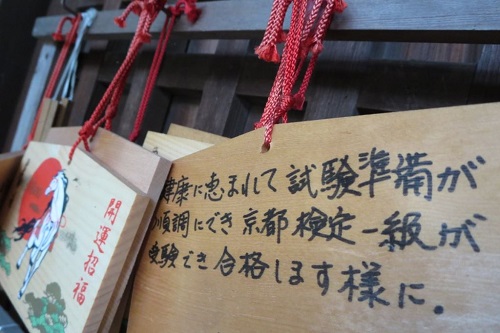 開運招福
健康に恵まれて試験準備が
順調にでき京都検定一級が
受験でき合格します様に.